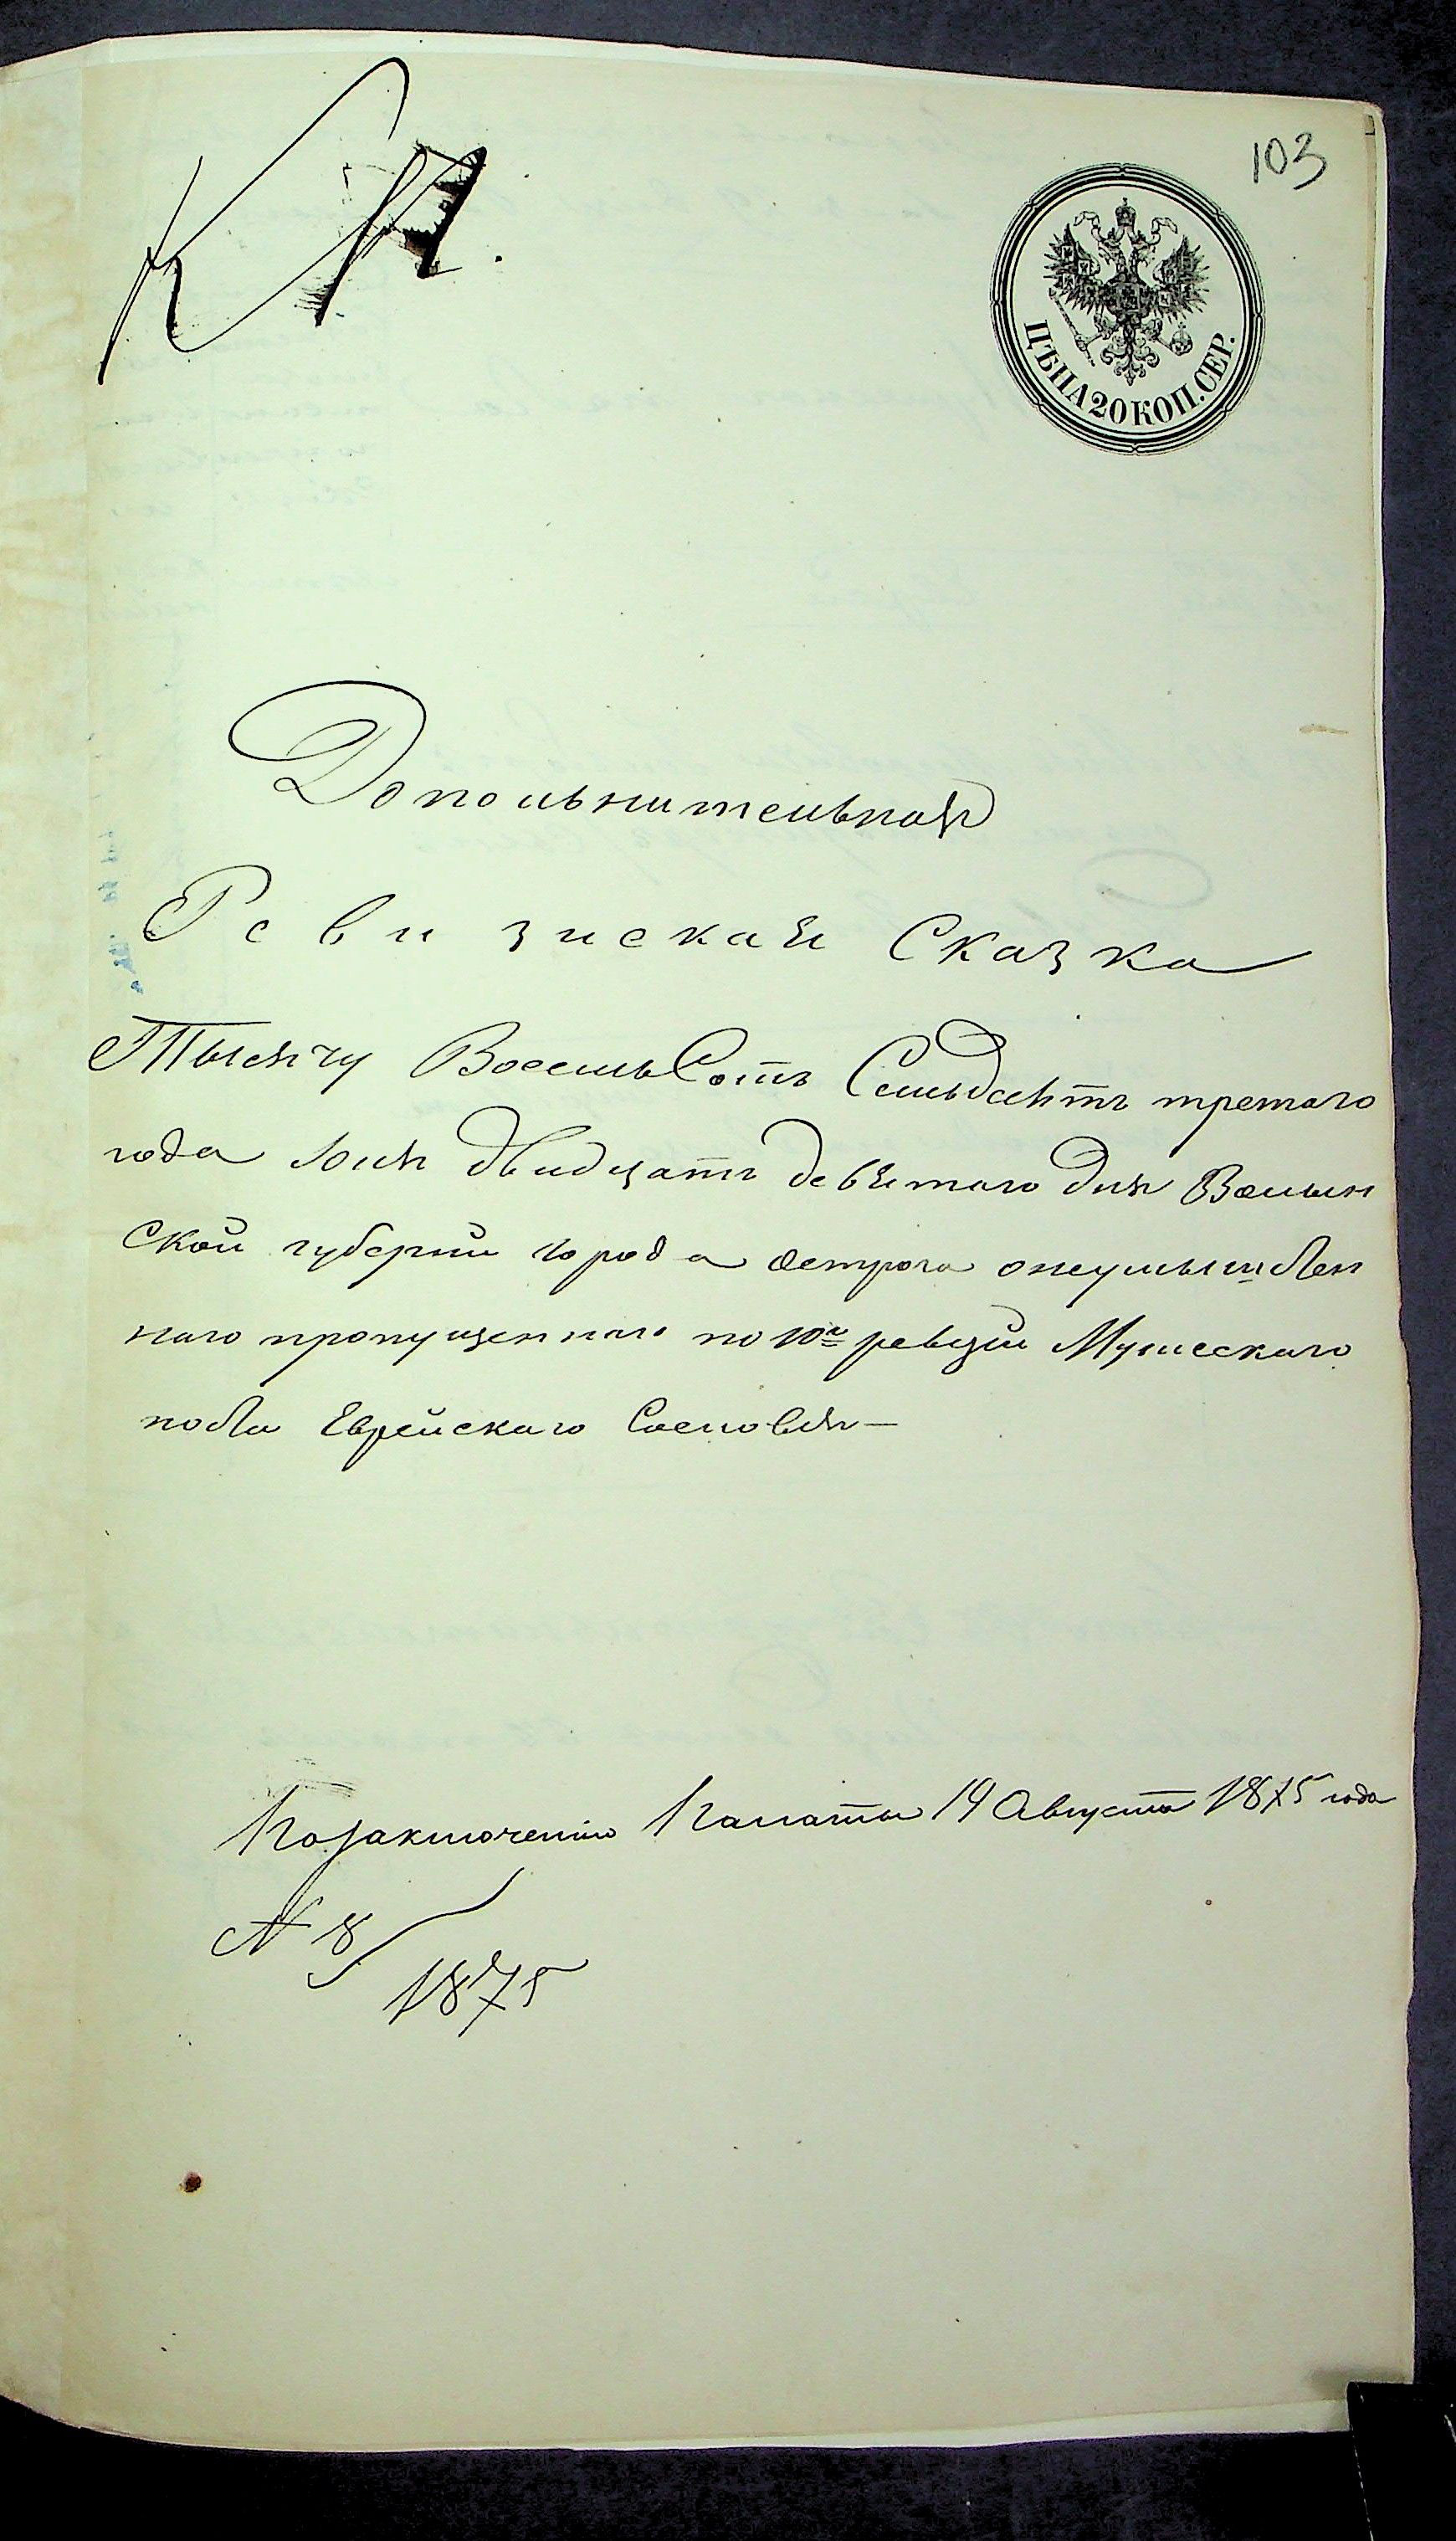 103
К Н.
ЦѢНА 20 КОП. СЕР.
Допольнительная
Ревизская Сказка
Тысячу ВосемьСотъ Семьдесятъ третаго
года Юня двадцать девятаго дня Волын
ской губерніи города Острога онеумышлен
наго пропущеннаго по 10й ревизіи Мужескаго
пола Еврейскаго Сословия —
Позаключенію Палаты 14 Августа 1875 года
N 8/
1875